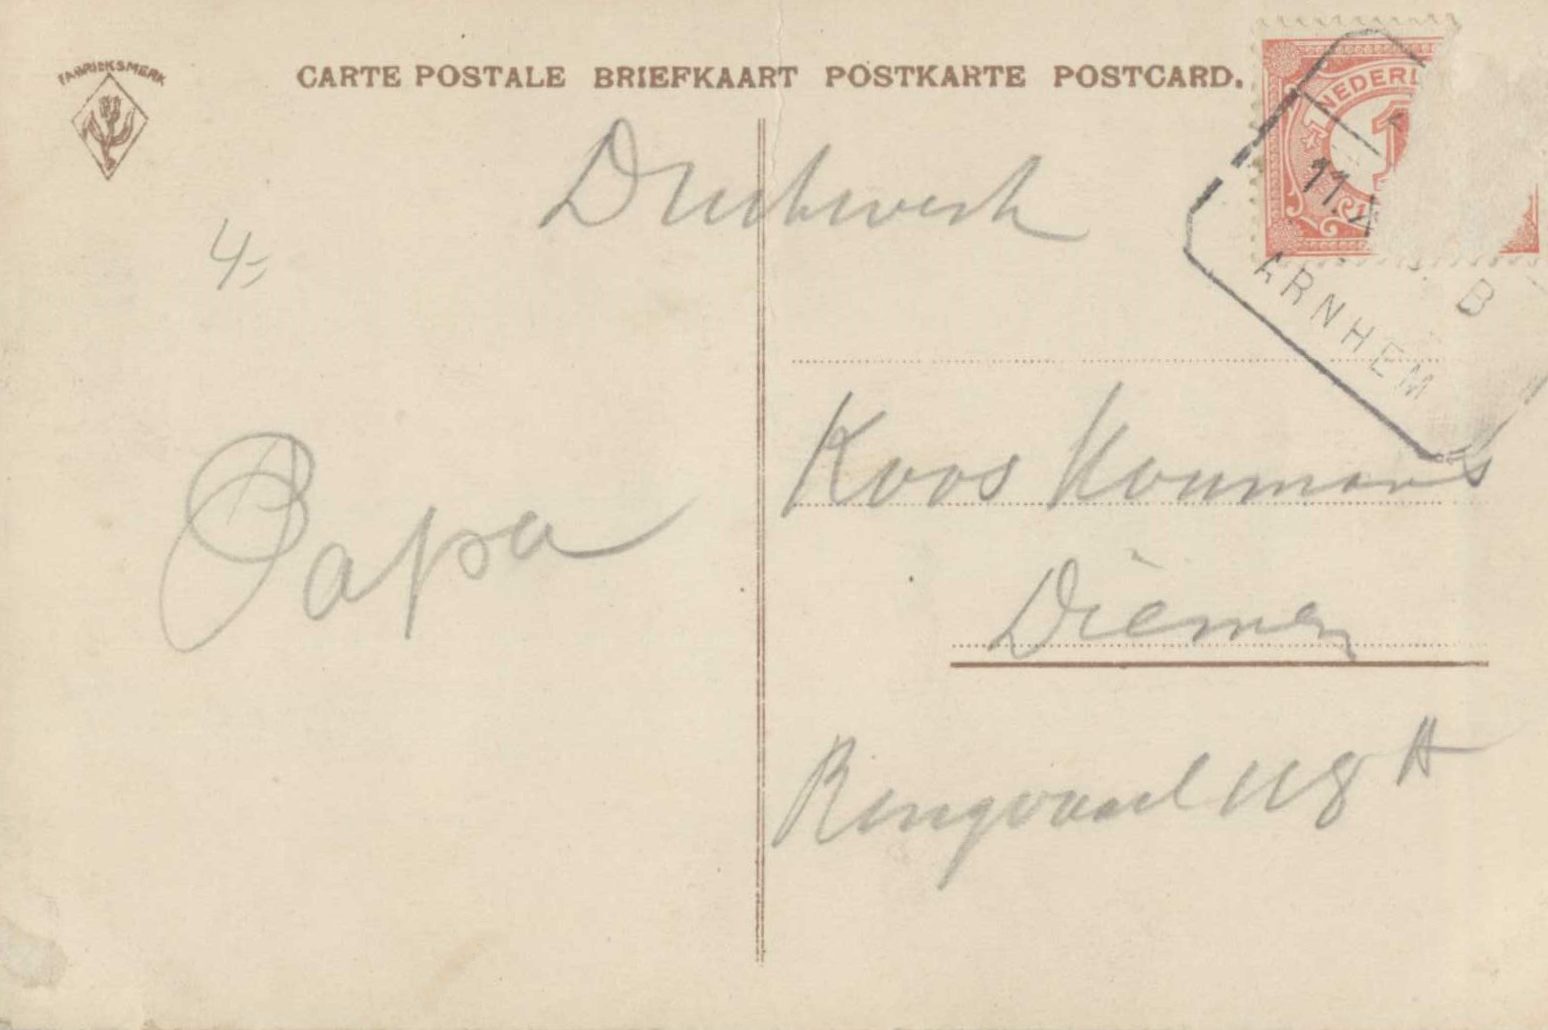 FABRIEKSMERK
CARTE POSTALE BRIEFKAART POSTKARTE POSTCARD.
NEDERL
1
11.X
B
ARNHEM
Drukwerk
4,-
Papa
Koos Koumans
Diemen
Ringvaart 118 A